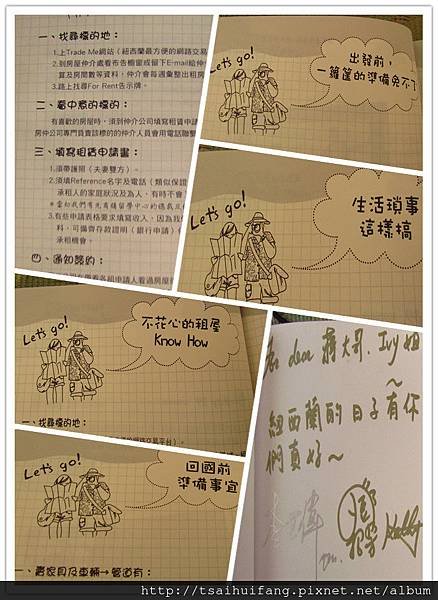 一、找尋標的地：
1.上Trade Me網站（紐西蘭最方便的網路交易
2.到房屋仲介處看布告欄留或留下E-mail給仲
算及房間數等資料，仲介會每週彙整出租房
3.路上找尋For Rent告示牌。
二、看中意的標的：
有喜歡的房屋時，須到仲介公司填寫租賃申請
房仲公司專門負責該標的的仲介人員會用電話聯繫
三、填寫租賃申請書：
1.須帶護照（夫妻雙方）。
2.須填Reference名字及電話（類似保證
承租人的家庭狀況及為人，有時不會
3.有些申請表格要求填寫收入，因為我
料，可攜帶存款證明（銀行申請）
承租機會。
四、通知簽約：
Let's go!
出發前，
一籮筐的準備免不了
Let's go!
生活瑣事
這樣搞
Let's go!
不花心的租屋
Know How
一、找尋標的地：
Let's go!
回國前
準備事宜
一、賣家具及車輛→管道有：
dear 蔣大哥、Ivy姐
~
紐西蘭的日子有你
們真好~
http://tsaihuifang.pixnet.net/album